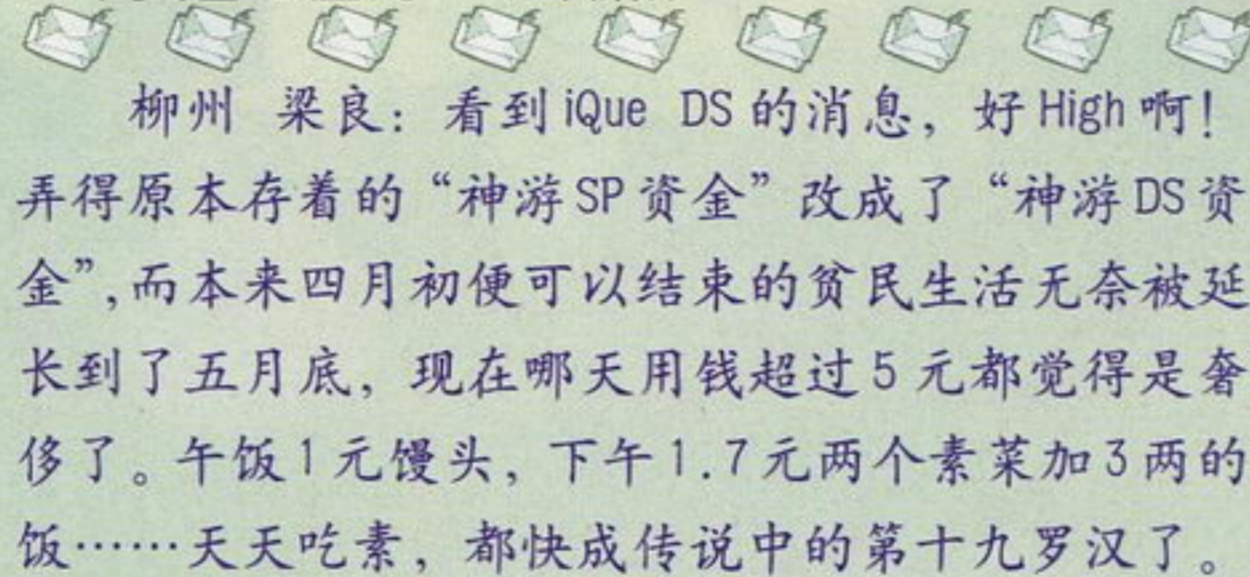 柳州 梁良：看到 iQue DS 的消息，好 High 啊！
弄得原本存着的“神游 SP 资金”改成了“神游 DS 资
金”,而本来四月初便可以结束的贫民生活无奈被延
长到了五月底，现在哪天用钱超过 5 元都觉得是奢
侈了。午饭 1 元馒头，下午 1.7 元两个素菜加 3 两的
饭……天天吃素，都快成传说中的第十九罗汉了。